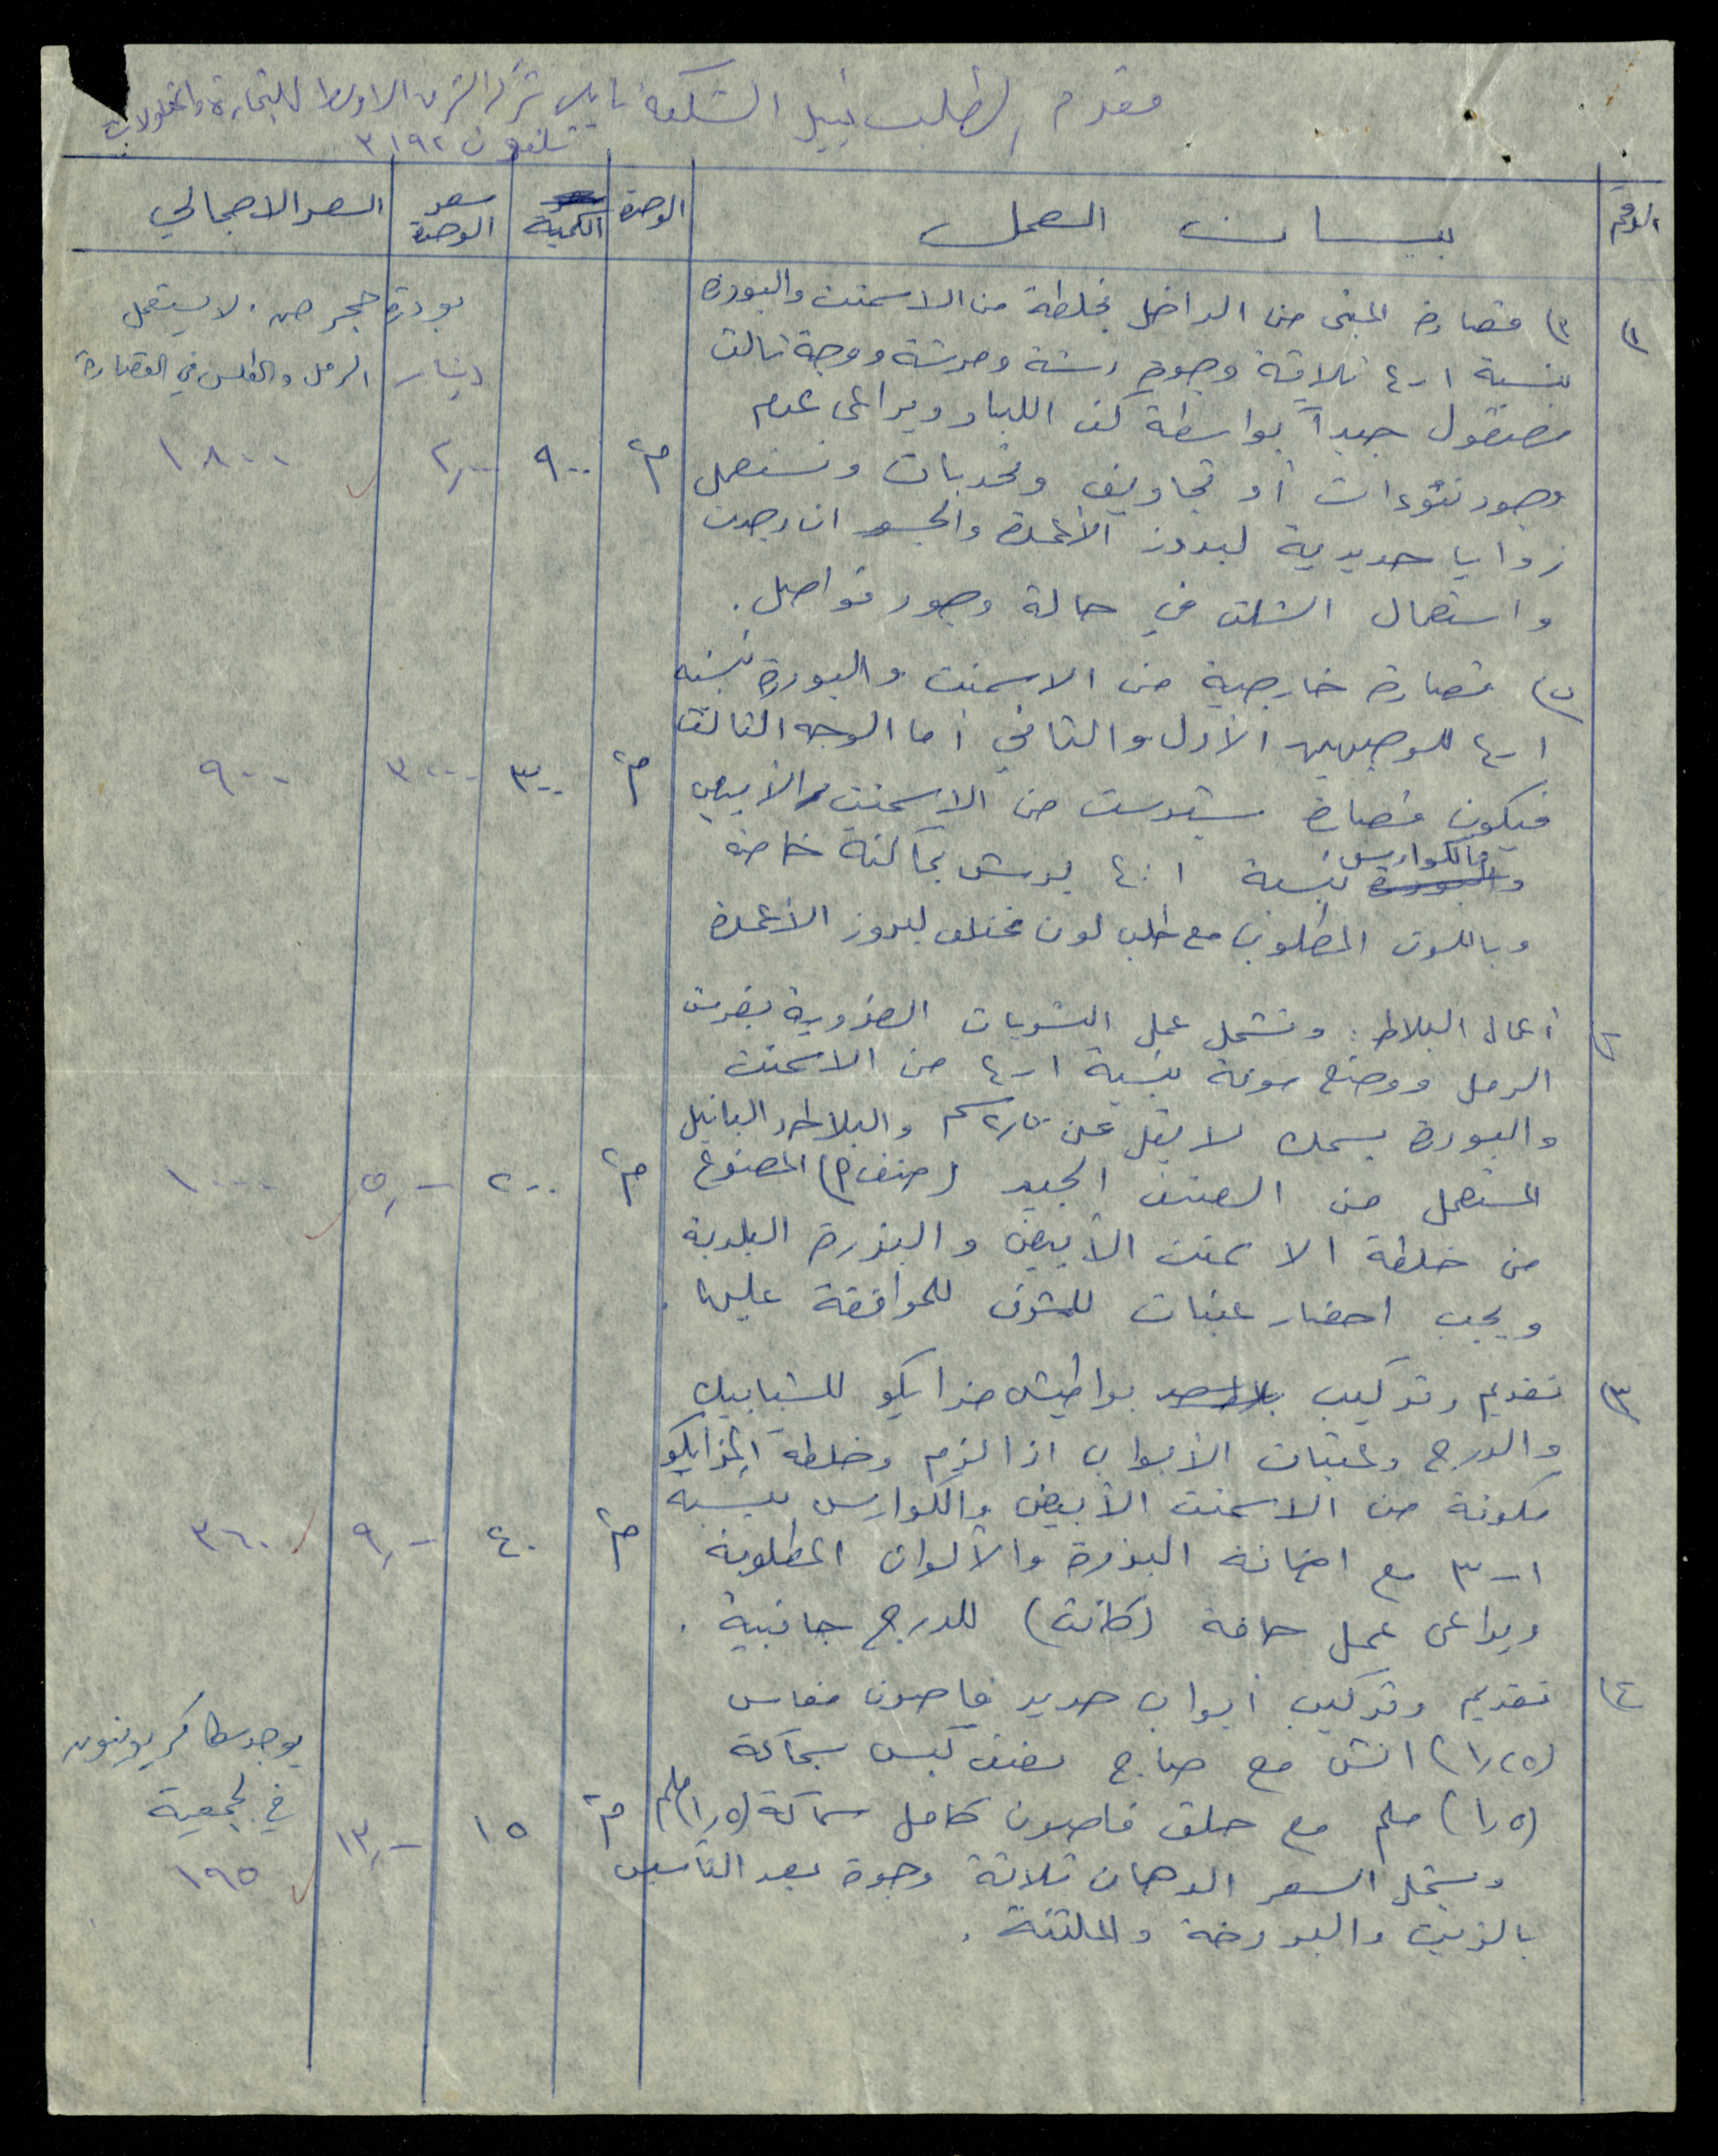 مقدم الطلب نبيل الشكعة نابلس شركة الشرق الاوسط للتجارة والمقاولات
تلفون ٣١٩٢
الرقم
بيـــان العمل
الوحدة
الكمية
سعر الوحدة
السعر الاجمالي
١) أ) قصارة المبنى من الداخل بخلطة من الاسمنت والبودرة
بنسبة ١-٤ ثلاثة وجوه رشة ومرشة ووجه ثالث
مصقول جيداً بواسطة كف اللباد ويراعى عدم
وجود نتوءات أو تجاويف وتحدبات وتستعمل
زوايا حديدية لبروز الأعمدة والجسور ان وجدت
واستعمال الشلك في حالة وجود فواصل.
م٢ ٩٠٠ ٢,٠٠ ١٨٠٠
دينار
بودرة حجر من. لا يستعمل
الرمل والكلس في القصارة
ب) قصارة خارجية من الاسمنت والبودرة بنسبة
١-٤ للوجهين الأول والثاني أما الوجه الثالث
فيكون قصارة من الاسمنت الأبيض
والكوارس بنسبة ١:٤ يرش بماكنة خاصة
وباللون المطلوب مع طلب لون مختلف لبروز الأعمدة
م٢ ٣٠٠ ٣,٠٠٠ ٩٠٠
٢) أعمال البلاط: وتشمل عمل التسويات الضرورية بفرش
الرمل ووضع مونة بنسبة ١-٤ من الاسمنت
والبودرة بسمك لا يقل عن ٢,٥٠ سم والبلاط والبانيل
المستعمل من الصنف الجيد (صنف أ) المصنوع
من خلطة الاسمنت الأبيض والبذرة البلدية
ويجب احضار عينات للمشرف للموافقة عليها.
م٢ ٢٠٠ ٥,- ١٠٠٠
٣) تقديم وتركيب بواطيش مزايكو للشبابيك
والدرج وعتبات الأبواب اذا لزم وخلطة المزايكو
مكونة من الاسمنت الأبيض والكوارس بنسبة
١-٣ مع اضافة البذرة والألوان المطلوبة
ويراعى عمل حافة (كانت) للدرج جانبية.
م٢ ٤٠ ٩,- ٣٦٠
٤) تقديم وتركيب أبواب حديد فاصون مقاس
(١,٢٥) انش مع صاج نصف كبس سماكة
(١,٥) ملم مع حلق فاصون كامل سماكة (١,٥) ملم
ويشمل السعر الدهان ثلاثة وجوه بعد التأسيس
بالزيت والبرداخة والملتنة.
م٢ ١٥ ١٣,- ١٩٥
يوجد
في الجمعية